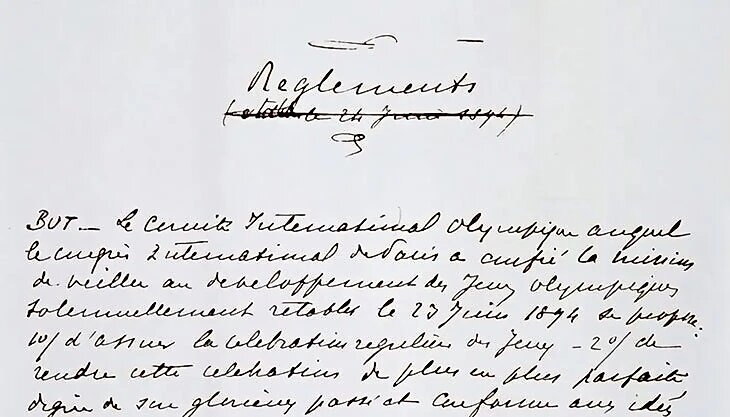 Reglements
(établi le 24 Juin 1894)
BUT — Le Comité International Olympique auquel
le congrès International de Paris a confié la mission
de veiller au developpement des Jeux olympiques
solennellement retablis le 23 Juin 1894 se propose:
1o/ d'assurer la celebration reguliere des Jeux — 2o/ de
rendre cette celebration de plus en plus parfaite
digne de son glorieux passé et conforme aux idées